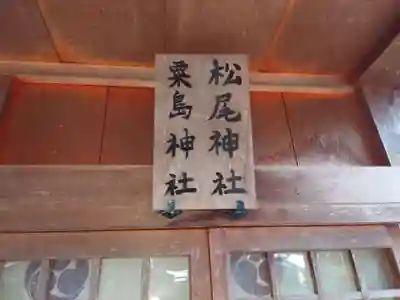 松尾神社
粟島神社